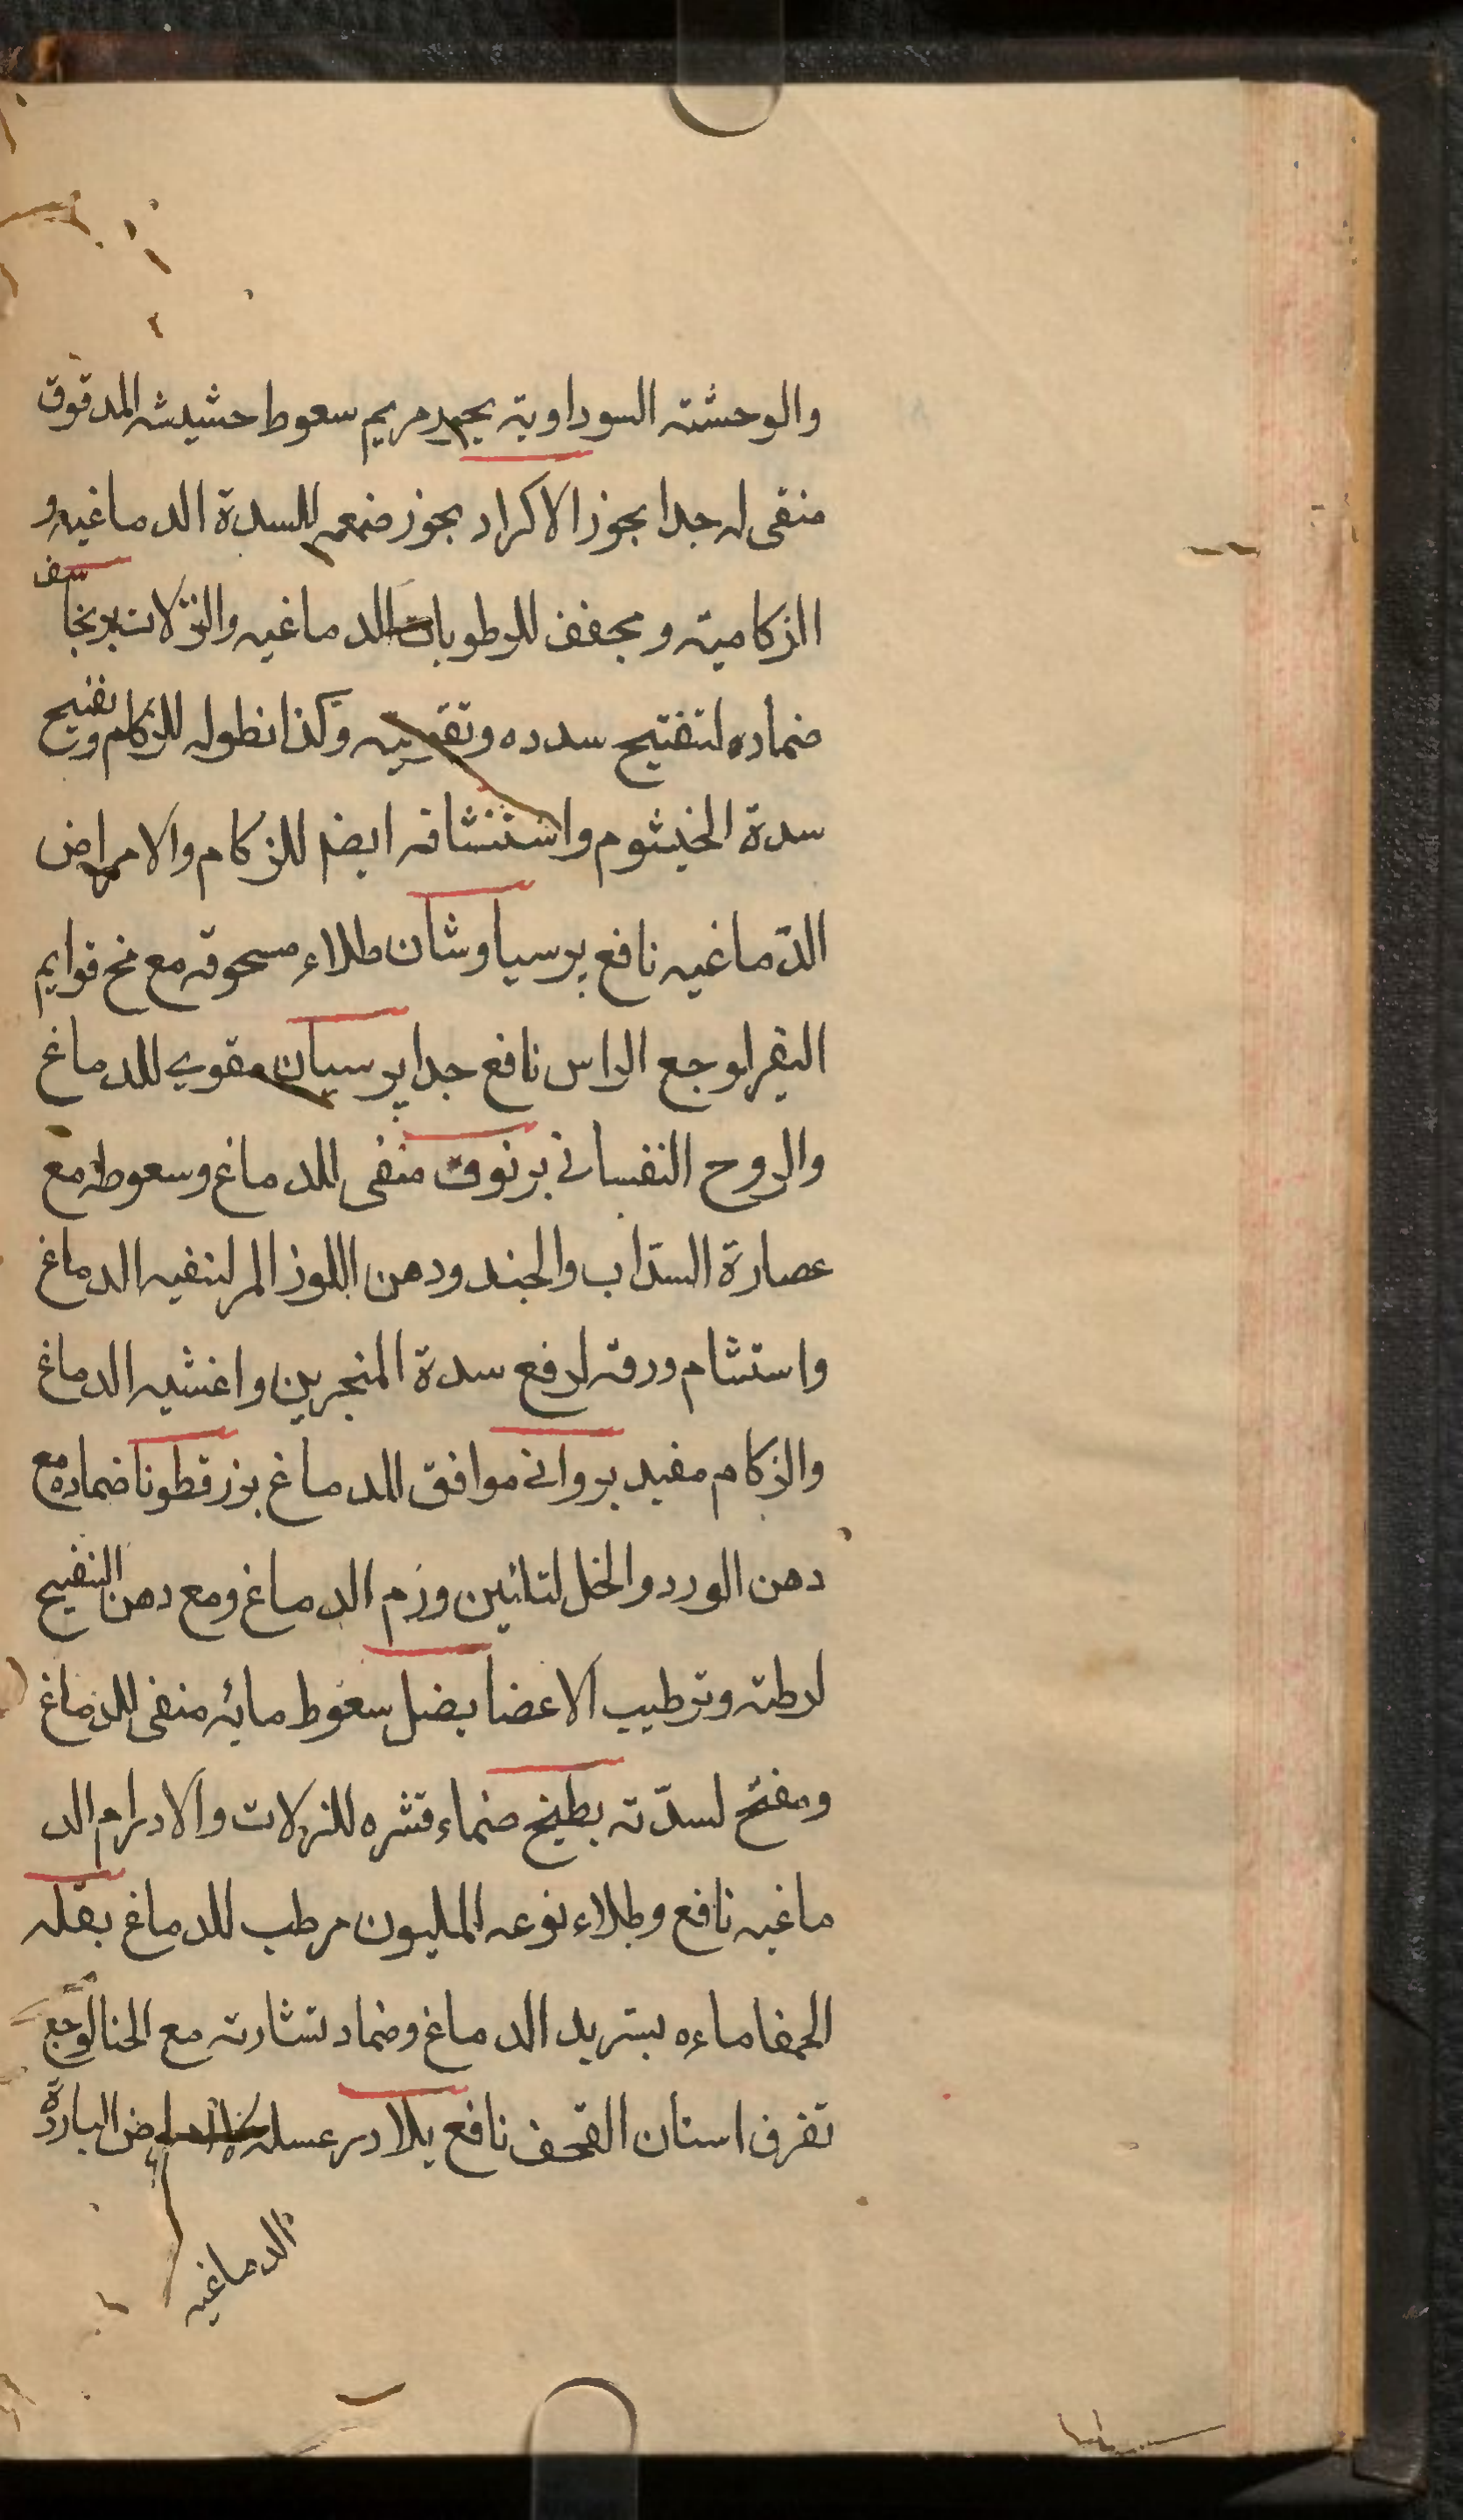 والوحشته السوداوية بجيد مريم سعوط حشيشه المدقوق
منقى له جدا بجوز الاكراد بجوز ضمعه للسدة الدماغيه و
الزكاميه ومجفف للرطوبات الدماغيه والنزلات برنجاسف
ضماده لتفتيح سدده وتقويته وكذا نطوله للزكام وتفتيح
سدة الخيشوم واستنشاقه ايضا للزكام والامراض
الدماغيه نافع برسياوشان طلاء مسحوقه مع مخ قوايم
البقر لوجع الراس نافع جدا برسيان مقوي للدماغ
والروح النفسانى برنوف منقى للدماغ وسعوطه مع
عصارة السداب والجند ودهن اللوز المر لتنقيه الدماغ
واستشام ورقه لرفع سدة المنخرين واغشيه الدماغ
والزكام مفيد بروانى موافق للدماغ بزرقطونا ضماده مع
دهن الورد والخل لتلئين ورم الدماغ ومع دهن البنفسج
لرطته وترطيب الاعضا بصل سعوط مائه منقى للدماغ
ومفتح لسدته بطيخ ضماء قشره للنزلات والاورام الد
ماغيه نافع وطلاء نوعه المليون مرطب للدماغ بقله
الحمقا ماءه بتبريد الدماغ وضماد نشارته مع الحنا لوجع
تفرق اسنان القحف نافع بلادر عسله الامراض الباردة
الدماغيه